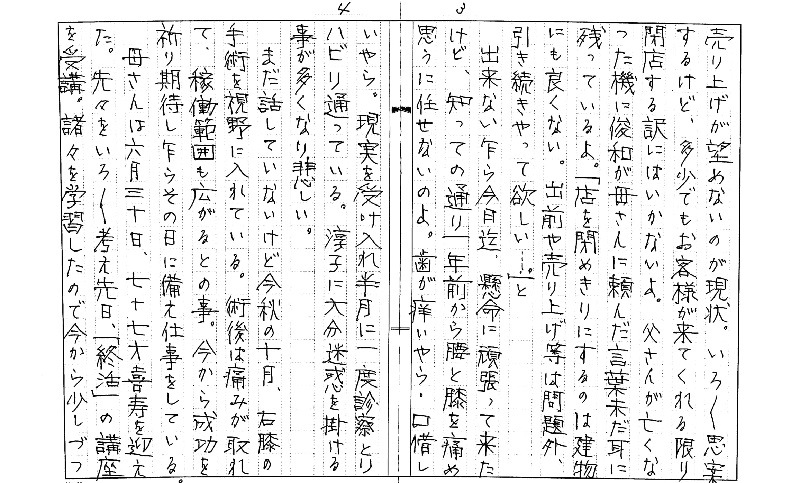 3
売り上げが望めないのが現状。いろ〱思案
するけど、多少でもお客様が来てくれる限り
閉店する訳にはいかないよ。父さんが亡くな
った機に俊和が母さんに頼んだ言葉未だ耳に
残っているよ。「店を閉めきりにするのは建物
にも良くない。出前や売り上げ等は問題外、
引き続きやって欲しい…。」と
出来ない乍ら今月迄、懸命に頑張って来た
けど、知っての通り一年前から腰と膝を痛め
思うに任せないのよ。歯が痒いやら・口惜し
4
いやら。現実を受け入れ半月に一度診察とり
ハビリ通っている。淳子に大分迷惑を掛ける
事が多くなり悲しい。
まだ話していないけど今秋の十月、右膝の
手術を視野に入れている。術後は痛みが取れ
て、稼働範囲も広がるとの事。今から成功を
祈り期待し乍らその日に備え仕事をしている。
母さんは六月三十日、七十七才喜寿を迎え
た。先々をいろ〱考え先日、「終活」の講座
を受講。諸々を学習したので今から少しづつ